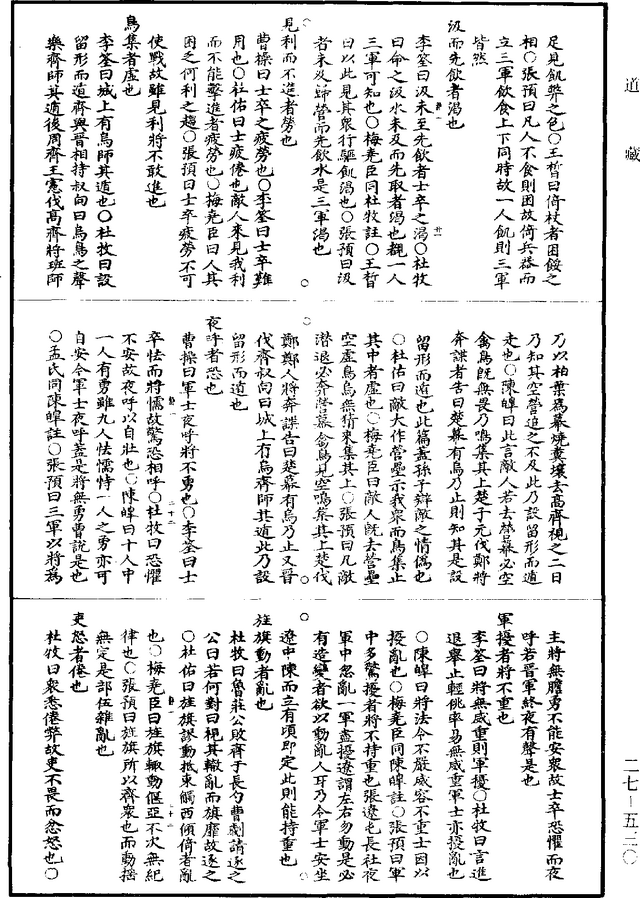 道藏
足見飢弊之色〇王晳曰倚杖者困餒之
相〇張預曰凡人不食則困故倚兵器而
立三軍飲食上下同時故一人飢則三軍
皆然
汲而先飲者渴也
李筌曰汲未至先飲者士卒之渴〇杜牧
曰命之汲水未及而先取者渴也覩一人
三軍可知也〇梅堯臣同杜牧註〇王晳
曰以此見其衆行驅飢渴也〇張預曰汲
者未及歸營而先飲水是三軍渴也
見利而不進者勞也
曹操曰士卒之疲勞也〇李筌曰士卒難
用也〇杜佑曰士疲倦也敵人來見我利
而不能擊進者疲勞也〇梅堯臣曰人其
困乏何利之趨〇張預曰士卒疲勞不可
使戰故雖見利將不敢進也
鳥集者虛也
李筌曰城上有鳥師其遁也〇杜牧曰設
留形而遁齊與晉相持叔向曰鳥烏之聲
樂齊師其遁後周齊王憲伐高齊將班師
乃以柏葉爲幕燒糞壤去高齊視之二日
乃知其空營追之不及此乃設留形而遁
走也〇陳皥曰此言敵人若去營幕必空
禽鳥既無畏乃鳴集其上楚子元伐鄭將
奔諜者告曰楚幕有烏乃止則知其是設
留形而遁也此篇蓋孫子辯敵之情僞也
〇杜佑曰敵大作營壘示我衆而鳥集止
其中者虛也〇梅堯臣曰敵人既去營壘
空虛鳥烏無猜來集其上〇張預曰凡敵
潛退必存營幕禽鳥見空鳴集其上楚伐
鄭鄭人將奔諜告曰楚幕有烏乃止又晉
伐齊叔向曰城上有烏齊師其遁此乃設
留形而遁也
夜呼者恐也
曹操曰軍士夜呼將不勇也〇李筌曰士
卒怯而將懦故驚恐相呼〇杜牧曰恐懼
不安故夜呼以自壯也〇陳皥曰十人中
一人有勇雖九人怯懦恃一人之勇亦可
自安今軍士夜呼蓋是將無勇曹說是也
〇孟氏同陳皥註〇張預曰三軍以將爲
主將無膽勇不能安衆故士卒恐懼而夜
呼若晉軍終夜有聲是也
軍擾者將不重也
李筌曰將無威重則軍擾〇杜牧曰言進
退舉止輕佻率易無威重軍士亦擾亂也
〇陳皥曰將法令不嚴威容不重士因以
擾亂也〇梅堯臣同陳皥註〇張預曰軍
中多驚擾者將不持重也張遼屯長社夜
軍中忽亂一軍盡擾遼謂左右勿動是必
有造變者欲以動亂人耳乃令軍士安坐
遼中陳而立有頃即定此則能持重也
旌旗動者亂也
杜牧曰魯莊公敗齊于長勺曹劌請逐之
公曰若何對曰視其轍亂而旗靡故逐之
〇杜佑曰旌旗謬動抵東觸西傾倚者亂
也〇梅堯臣曰旌旗輒動偃亞不次無紀
律也〇張預曰旌旗所以齊衆也而動搖
無定是部伍雜亂也
吏怒者倦也
杜牧曰衆悉倦弊故吏不畏而忿怒也〇
二七—五三〇